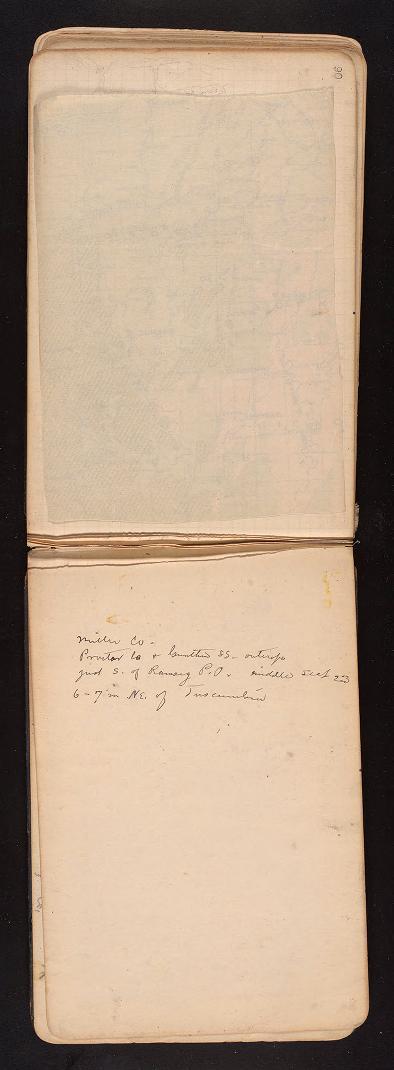 90
Miller Co.
Proctor ls & Gunter SS - outcrop
just S. of Ramsey P.O. middle Sect 23
6-7 m NE. of Tuscumbia